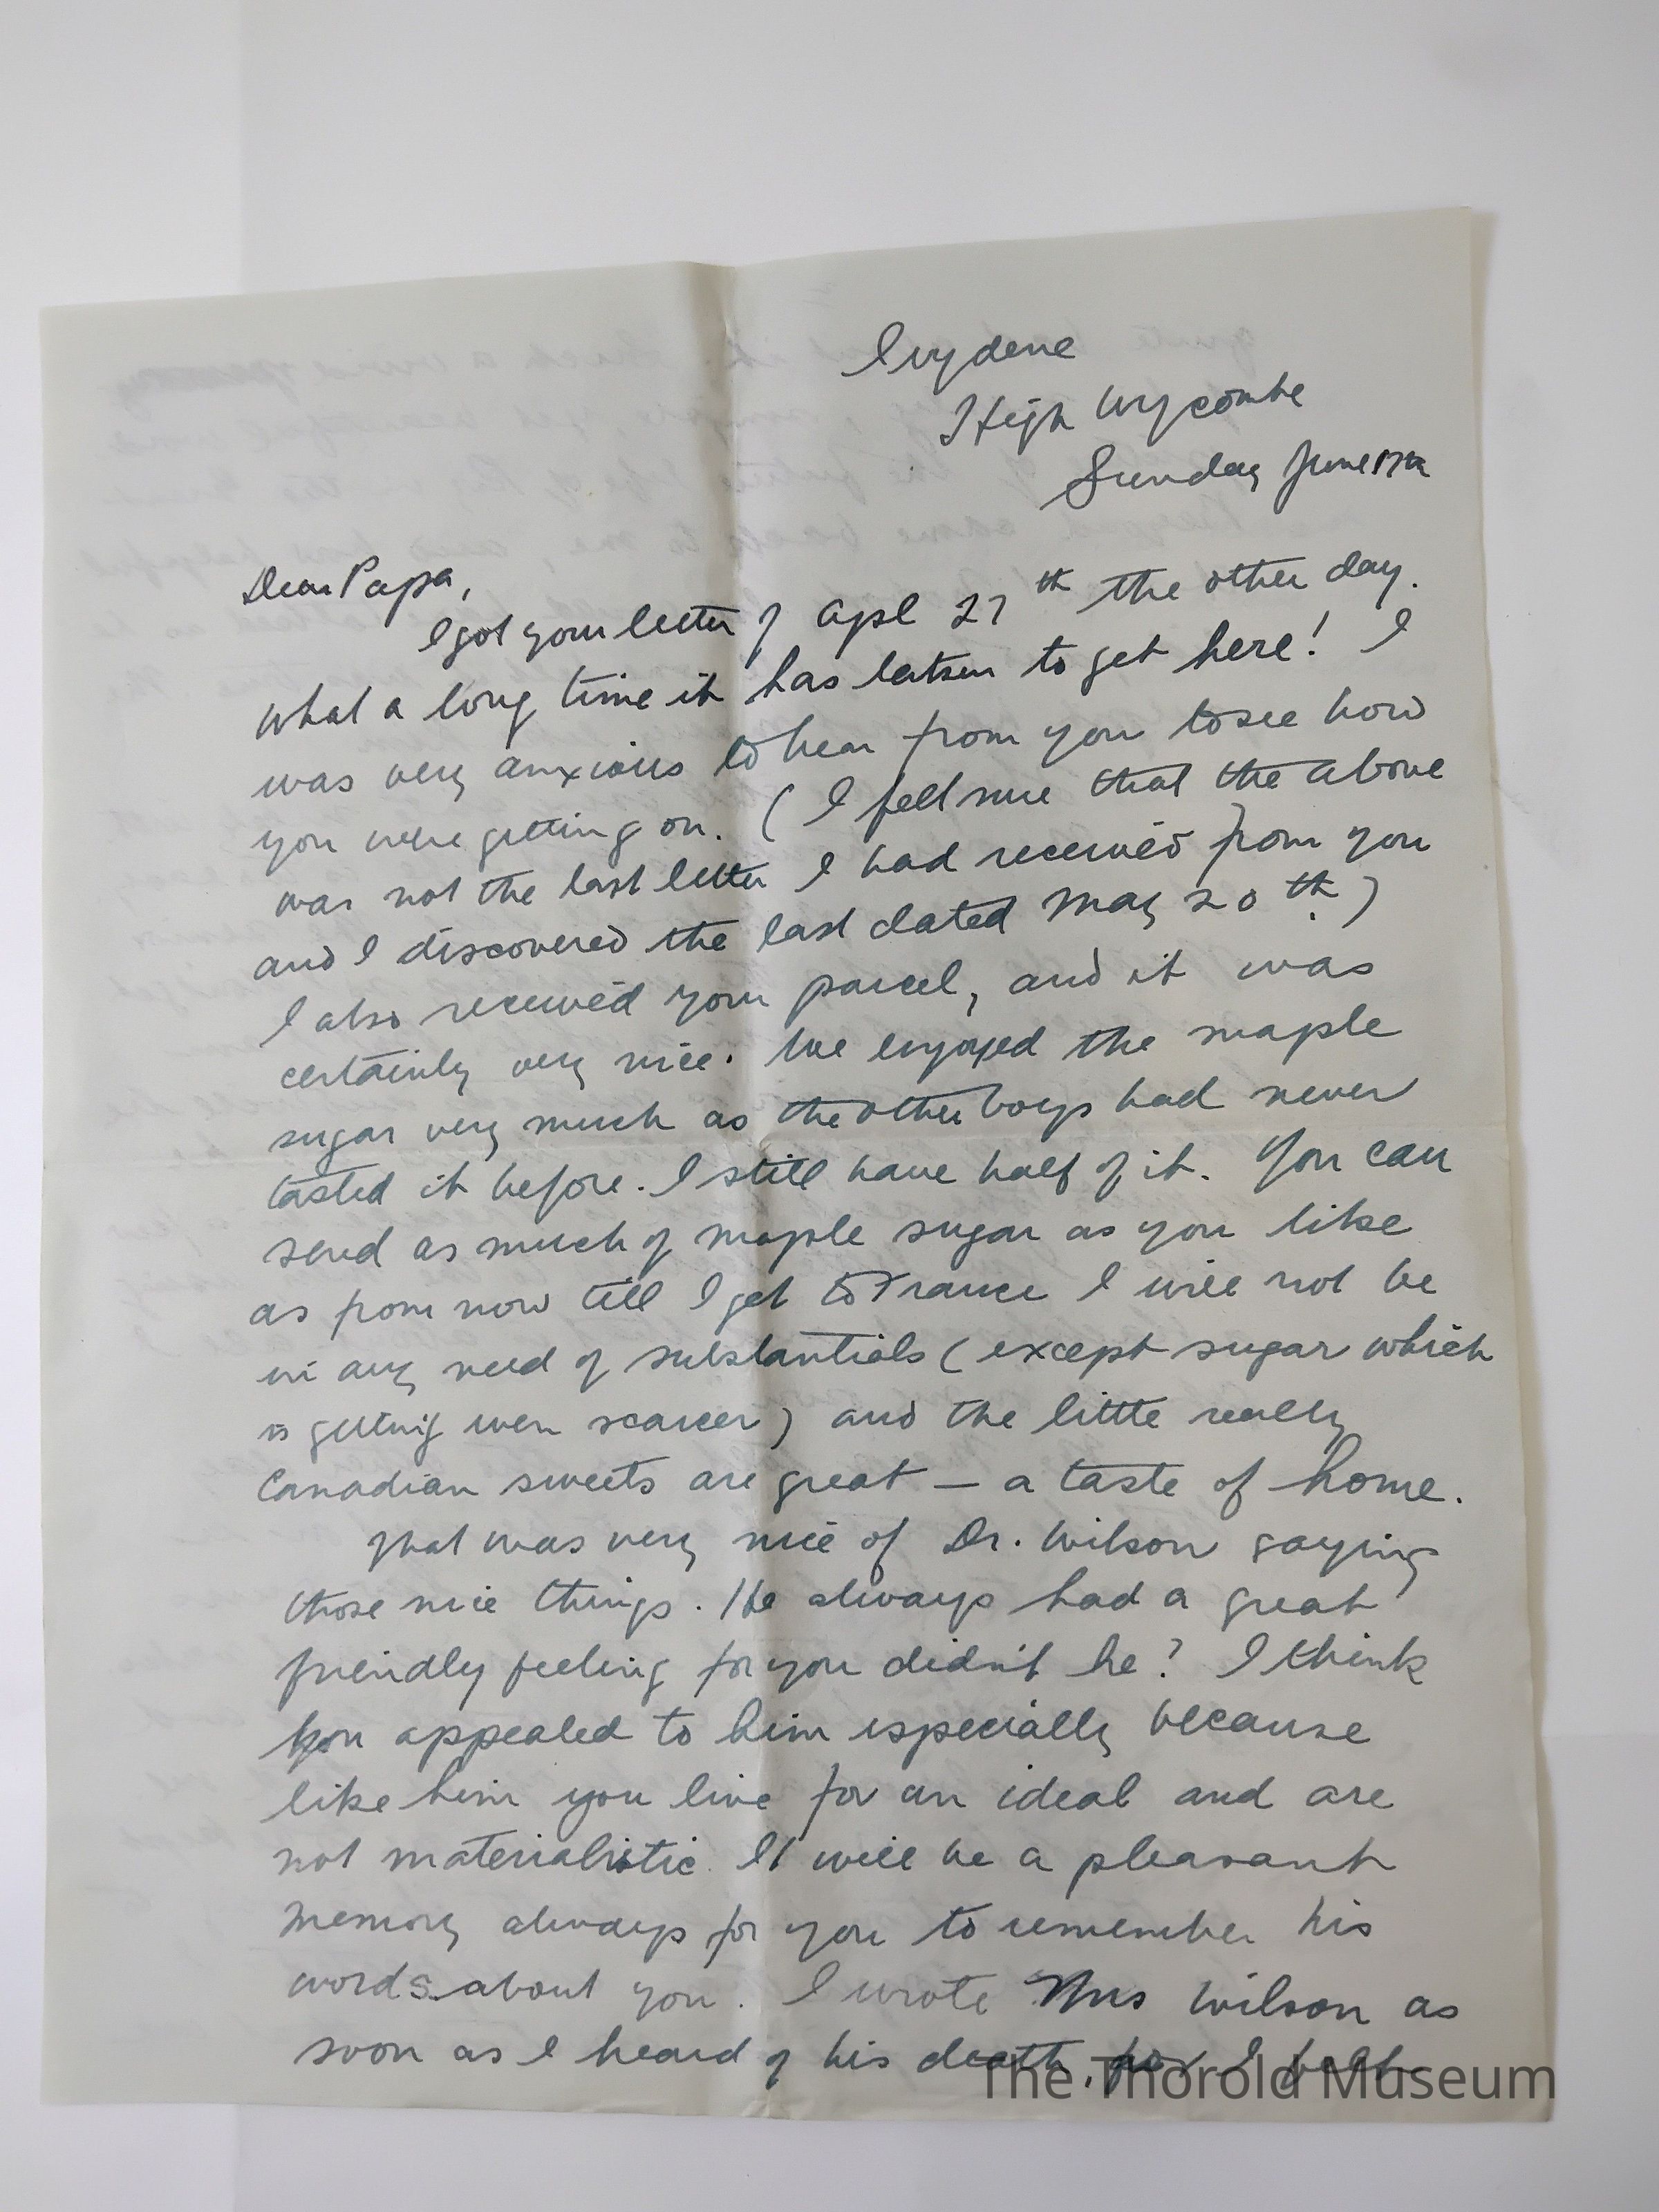 Ivydene
High Wycombe
Sunday June 17th
Dear Papa,
I got your letter of Apl 27th the other day.
What a long time it has taken to get here! I
was very anxious to hear from you to see how
you were getting on. (I felt sure that the above
was not the last letter I had received from you
and I discovered the last dated May 20th.)
I also received your parcel, and it was
certainly very nice. We enjoyed the maple
sugar very much as the other boys had never
tasted it before. I still have half of it. You can
send as much of maple sugar as you like
as from now till I get to France I will not be
in any need of substantials (except sugar which
is getting even scarcer) and the little really
Canadian sweets are great — a taste of home.
That was very nice of Dr. Wilson saying
those nice things. He always had a great
friendly feeling for you didn't he? I think
you appealed to him especially because
like him you live for an ideal and are
not materialistic. It will be a pleasant
memory always for you to remember his
words about you. I wrote Mrs Wilson as
soon as I heard of his death, for I felt
The Thorold Museum